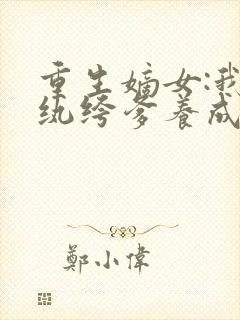 重生嫡女:我
纨绔爹养成
鄭小偉